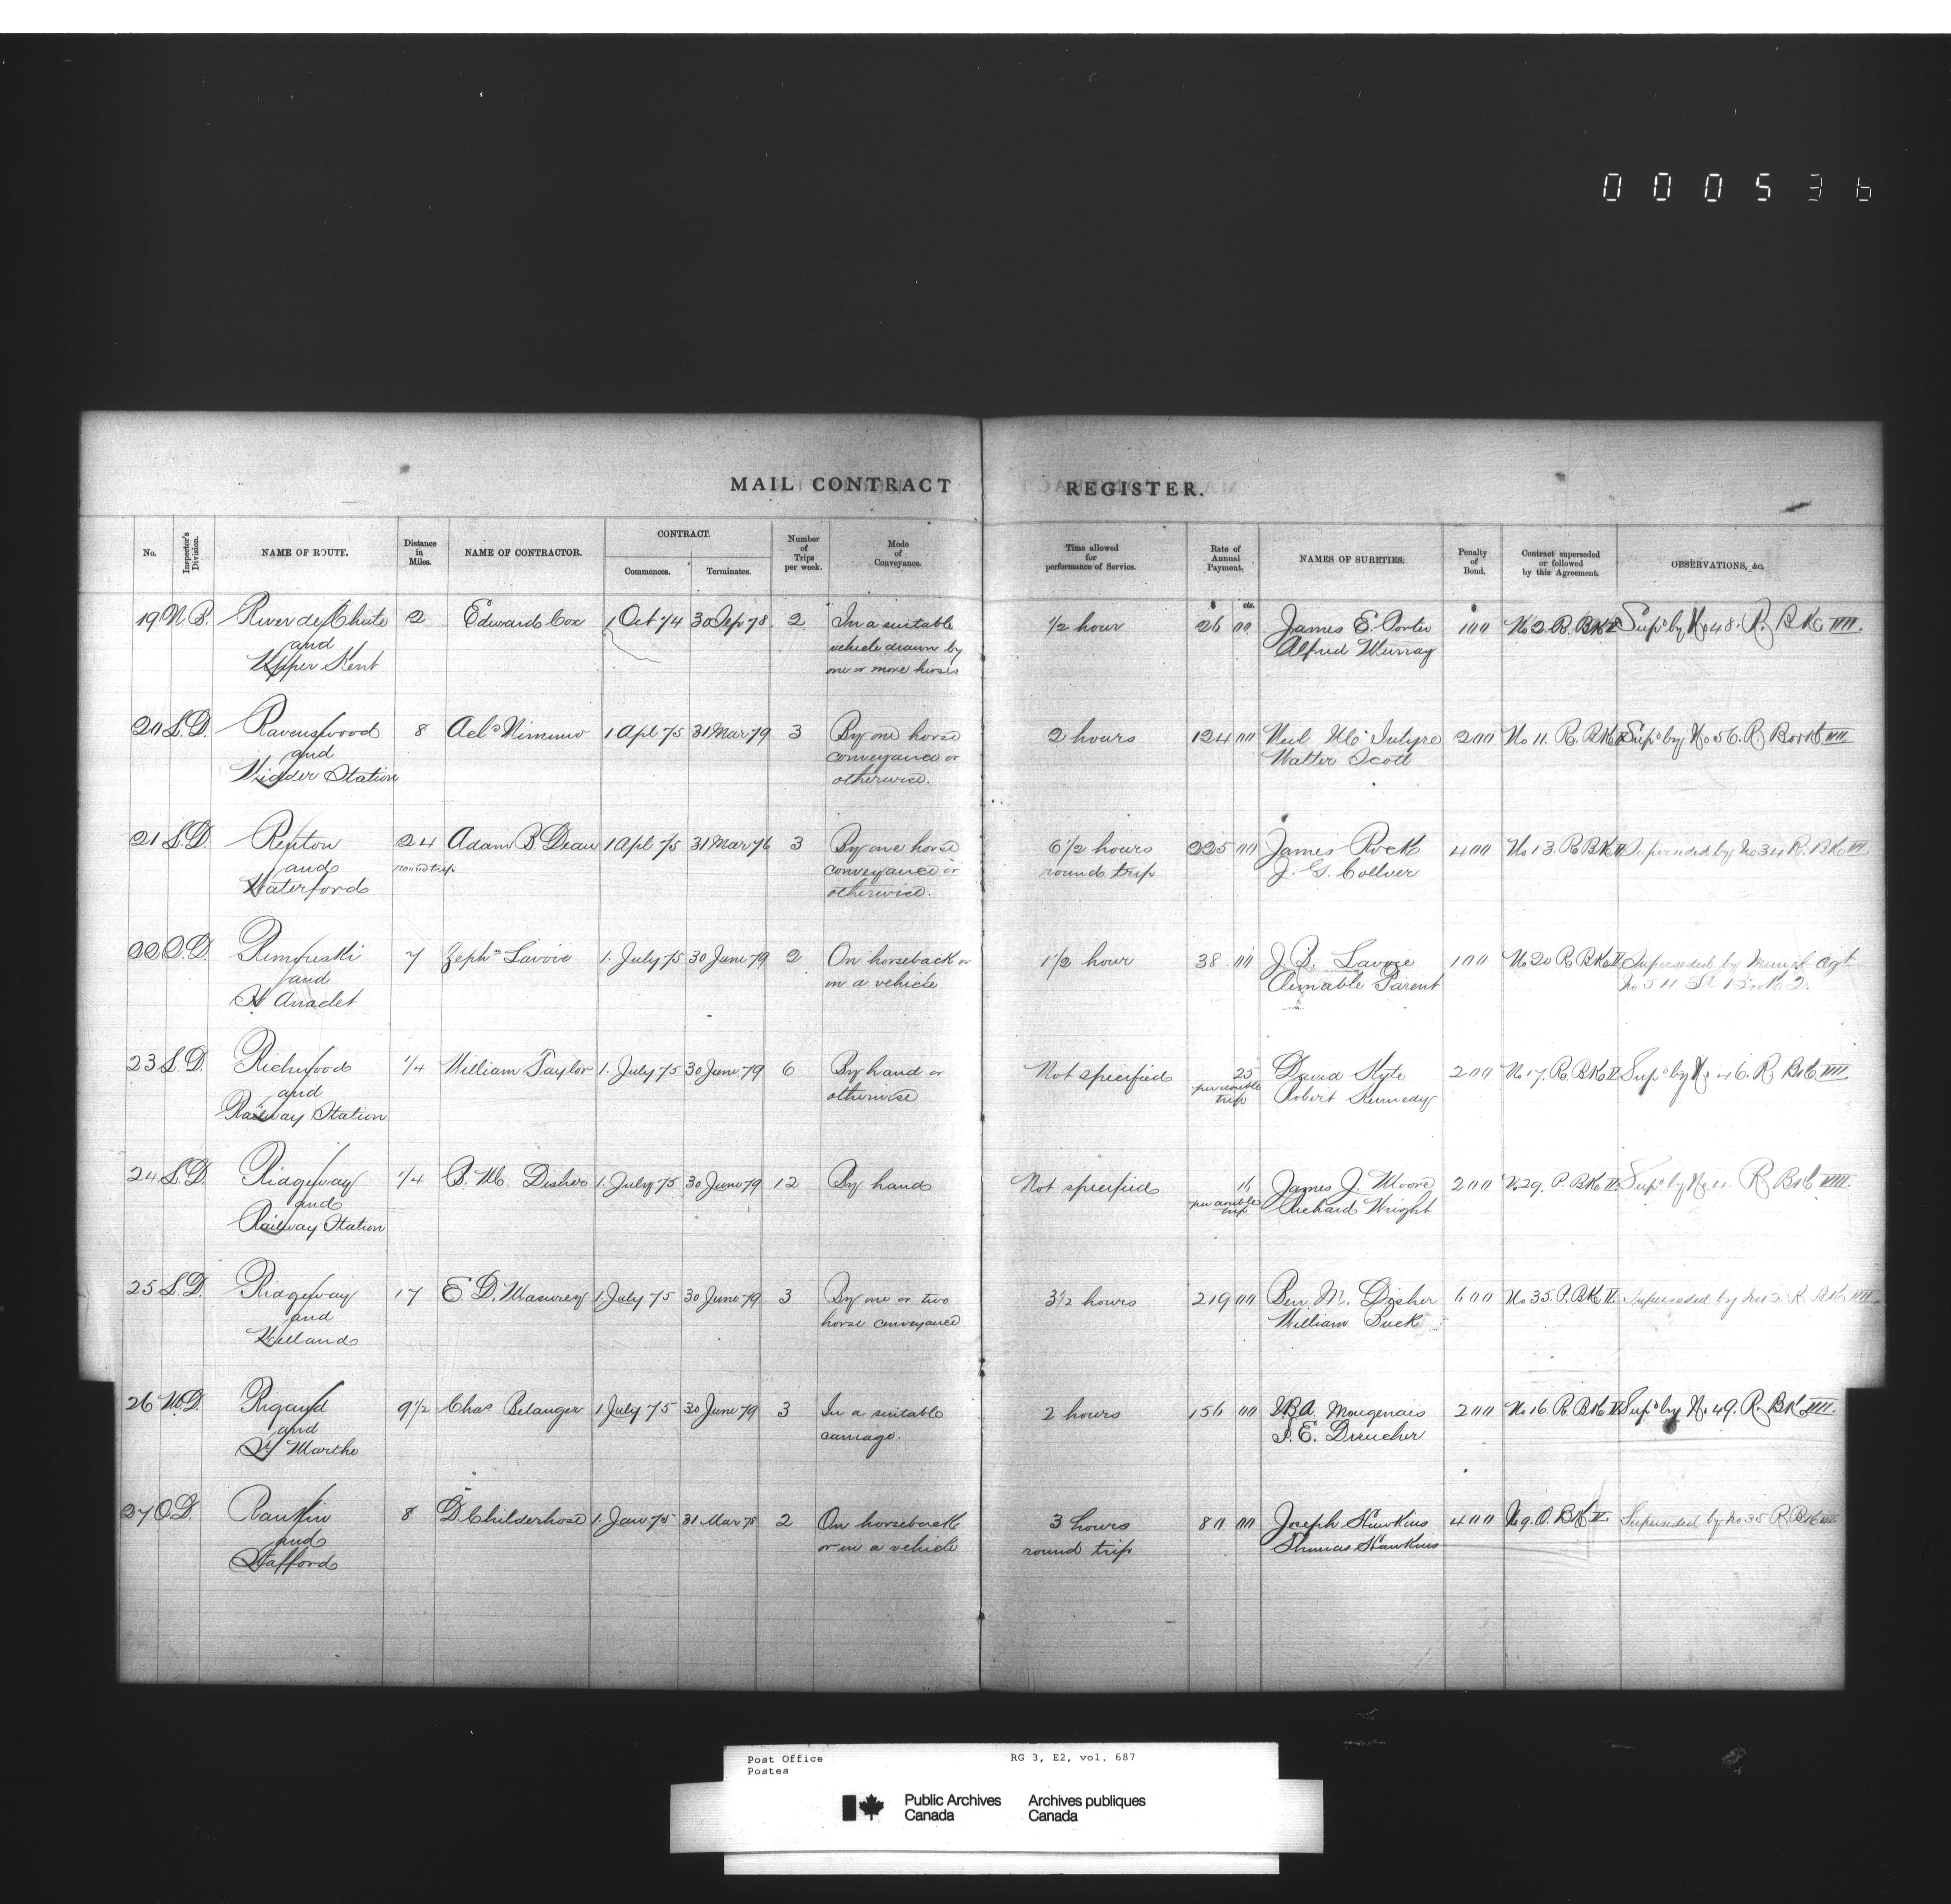 000536
MAIL CONTRACT REGISTER.
No. Inspector's Division. NAME OF ROUTE. Distance in Miles. NAME OF CONTRACTOR. CONTRACT. Commences. Terminates. Number of Trips per week. Mode of Conveyance. Time allowed for performance of Service. Rate of Annual Payment. NAMES OF SURETIES. Penalty of Bond. Contract superseded or followed by this Agreement. OBSERVATIONS, &c.
$ cts. $
19 N.B. River de Chute 2 Edward Cox 1 Oct 74 30 Sep 78 2 In a suitable 1/2 hour 26 00 James E. Porter 100 No 2 R. BK Supd by No 48. R. BK VIII.
and vehicle drawn by Alfred Murray
Upper Kent one or more horses
20 L.D. Ravenswood 8 Nimmo 1 Apl 75 31 Mar 79 3 By one horse 2 hours 124 00 Neil McIntyre 200 No 11. R. BK Supd by No 56. R. Book VIII.
and conveyance or Walter Scott
Widder Station otherwise.
21 L.D. Renton 24 Adam B Dean 1 Apl 75 31 Mar 76 3 By one horse 6 1/2 hours 225 00 James Rock 400 No 13. R. BK V Superseded by No 34 R. BK VI
and round trip conveyance or round trip J. G. Collver
Waterford otherwise.
22 Q.D. Rimouski 7 Zephn Lavoie 1. July 75 30 June 79 2 On horseback or 1 1/2 hour 38 00 J. B. Lavoie 100 No 20 R BK V Superseded by agt
and in a vehicle Aimable Parent No 54 St Book 2.
St Anaclet
23 L.D. Richwood 1/4 William Taylor 1. July 75 30 June 79 6 By hand or Not specified 25 David Kyte 200 No 17. R. BK V Supd by No 46. R. BK VIII
and otherwise per double trip Robert Kennedy
Railway Station
24 L.D. Ridgeway 1/4 B. M. Disher 1. July 75 30 June 79 12 By hand Not specified James J. Moore 200 No 29. R. BK V. Supd by No 11. R. BK VIII.
and per double trip Richard Wright
Railway Station
25 L.D. Ridgeway 17 E. D. 1. July 75 30 June 79 3 By one or two 3 1/2 hours 219 00 Ben. M. Disher 600 No 35. R. BK V. Superseded by No 12 R BK VIII.
and horse conveyance William Buck
Welland
26 M.D. Rigaud 9 1/2 Chas Belanger 1 July 75 30 June 79 3 In a suitable 2 hours 156 00 J.B.A. Mongenais 200 No 16. R. BK V Supd by No 49. R. BK VIII.
and carriage.
St Marthe
27 O.D. Rankin 8 D. Childerhose 1. Jan 75 31 Mar 78 2 On horseback 3 hours 80 00 Joseph Hawkins 400 No 9. O. BK V Superseded by No 35 R. BK
and or in a vehicle round trip Thomas Hawkins
Stafford
Post Office RG 3, E2, vol. 687
Postes
Public Archives Archives publiques
Canada Canada